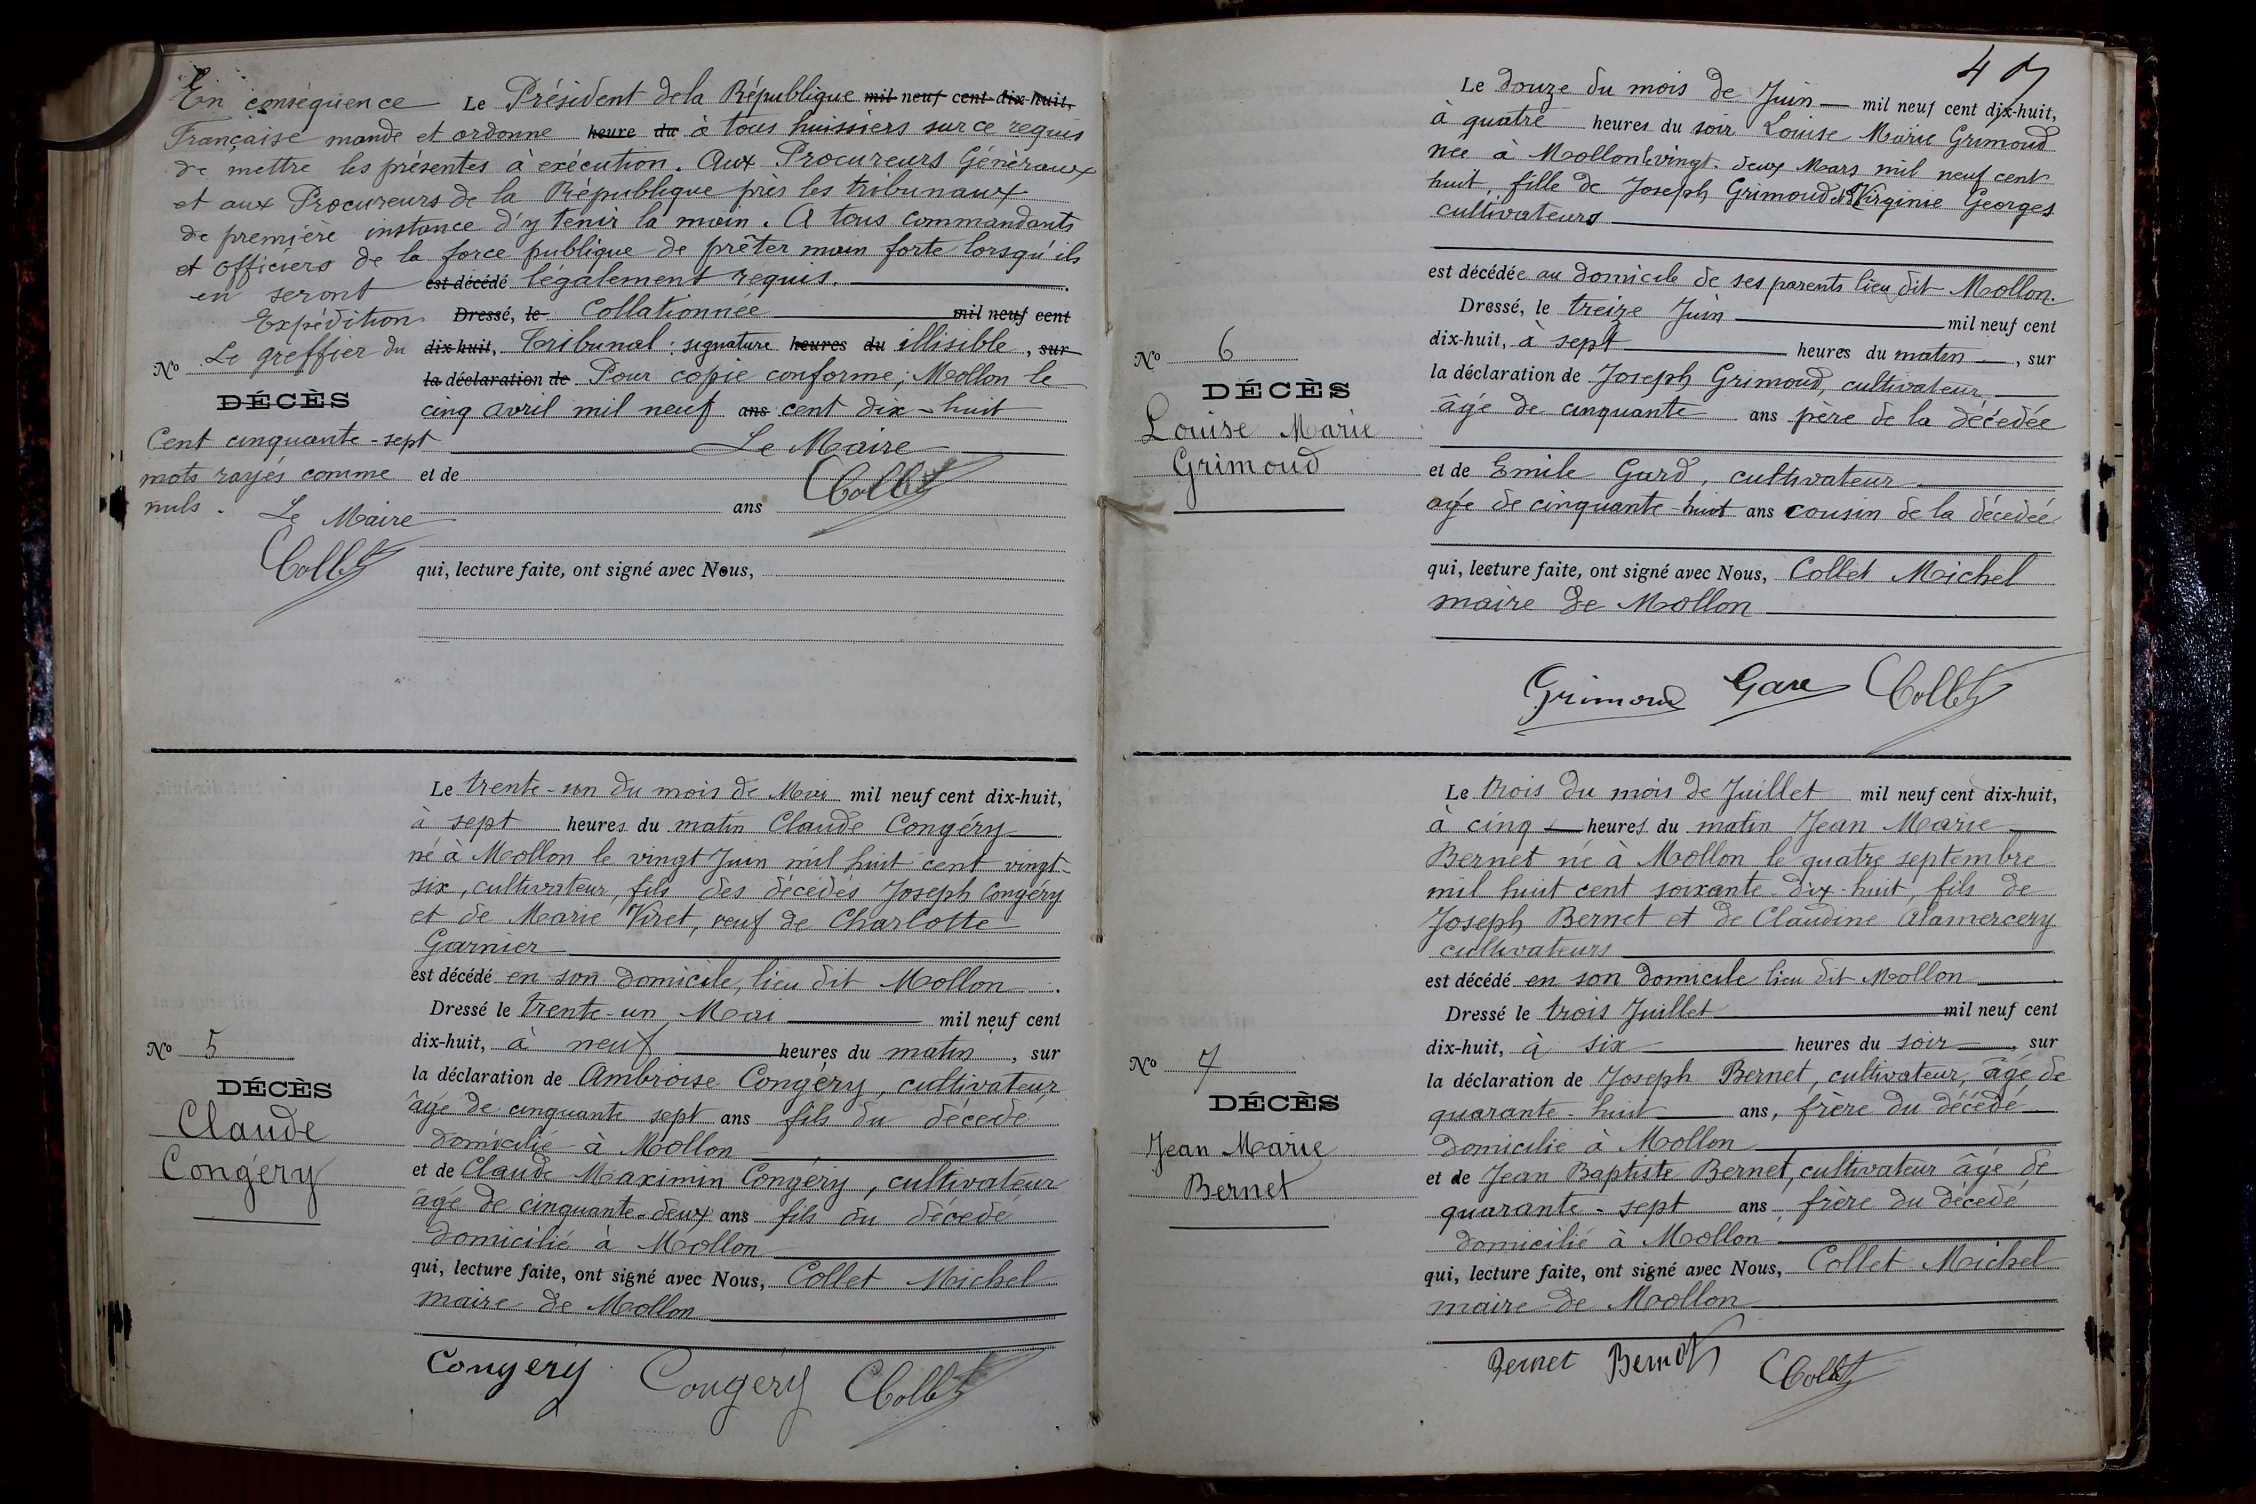 En conséquence Le Président de la République mil neuf cent dix-huit,
Française mande et ordonne heure du à tous huissiers sur ce requis
de mettre les présentes à exécution. Aux Procureurs Généraux
et aux Procureurs de la République près les tribunaux
de première instance d'y tenir la main. A tous commandants
et officiers de la force publique de prêter main forte lorsqu'ils
en seront est décédé légalement requis.
Expédition Dressé, le Collationnée mil neuf cent
No Le greffier du dix-huit, Tribunal : signature heures du illisible, sur
la déclaration de Pour copie conforme, Mollon le
DÉCÈS
cinq avril mil neuf ans cent dix-huit
Cent cinquante-sept Le Maire
mots rayés comme et de Collet
nuls. Le Maire ans
Collet
qui, lecture faite, ont signé avec Nous,
Le trente-un du mois de Mai mil neuf cent dix-huit,
à sept heures du matin Claude Congéry
né à Mollon le vingt Juin mil huit cent vingt-
six, cultivateur, fils des décédés Joseph Congéry
et de Marie Viret, veuf de Charlotte
Garnier
est décédé en son domicile, lieu dit Mollon.
Dressé le trente-un Mai mil neuf cent
No 5 dix-huit, à neuf heures du matin, sur
DÉCÈS
la déclaration de Ambroise Congéry, cultivateur,
Claude
âgé de cinquante sept ans fils du décédé
domicilié à Mollon
Congéry
et de Claude Maximin Congéry, cultivateur
âgé de cinquante-deux ans fils du décédé
domicilié à Mollon
qui, lecture faite, ont signé avec Nous, Collet Michel
maire de Mollon
Congery Congéry Collet
47
Le douze du mois de Juin mil neuf cent dix-huit,
à quatre heures du soir Louise Marie Grimoud
née à Mollon le vingt-deux Mars mil neuf cent
huit, fille de Joseph Grimoud et de Virginie Georges
cultivateurs
est décédée au domicile de ses parents lieu dit Mollon.
Dressé, le treize Juin mil neuf cent
No 6 dix-huit, à sept heures du matin, sur
DÉCÈS
la déclaration de Joseph Grimoud, cultivateur,
Louise Marie
âgé de cinquante ans père de la décédée
Grimoud
et de Emile Gard, cultivateur
âgé de cinquante-huit ans cousin de la décédée
qui, lecture faite, ont signé avec Nous, Collet Michel
maire de Mollon
Grimoud Collet
Le trois du mois de Juillet mil neuf cent dix-huit,
à cinq heures du matin Jean Marie
Bernet né à Mollon le quatre septembre
mil huit cent soixante-dix-huit, fils de
Joseph Bernet et de Claudine Alamercery
cultivateurs
est décédé en son domicile lieu dit Mollon.
Dressé le trois Juillet mil neuf cent
No 7 dix-huit, à six heures du soir, sur
DÉCÈS
la déclaration de Joseph Bernet, cultivateur, âgé de
quarante-huit ans, frère du décédé
Jean Marie
domicilié à Mollon
Bernet
et de Jean Baptiste Bernet, cultivateur âgé de
quarante-sept ans, frère du décédé
domicilié à Mollon
qui, lecture faite, ont signé avec Nous, Collet Michel
maire de Mollon
Bernet Bernet Collet